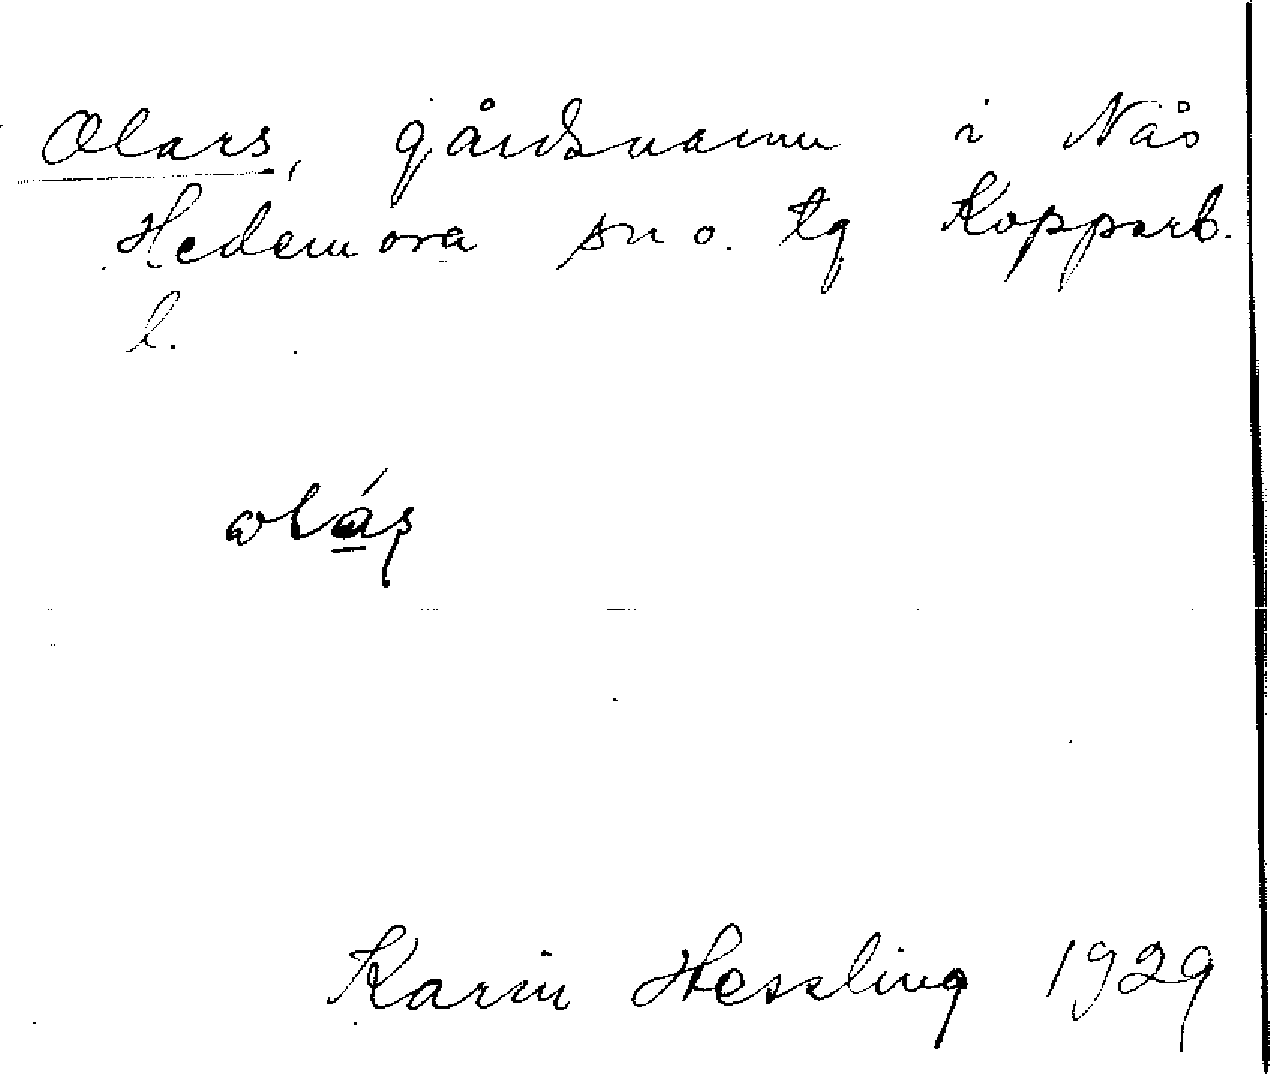 Olars, gårdsnamn i Nås
Hedemora sn o. tg Kopparb.
l.
Karin Hessling 1929